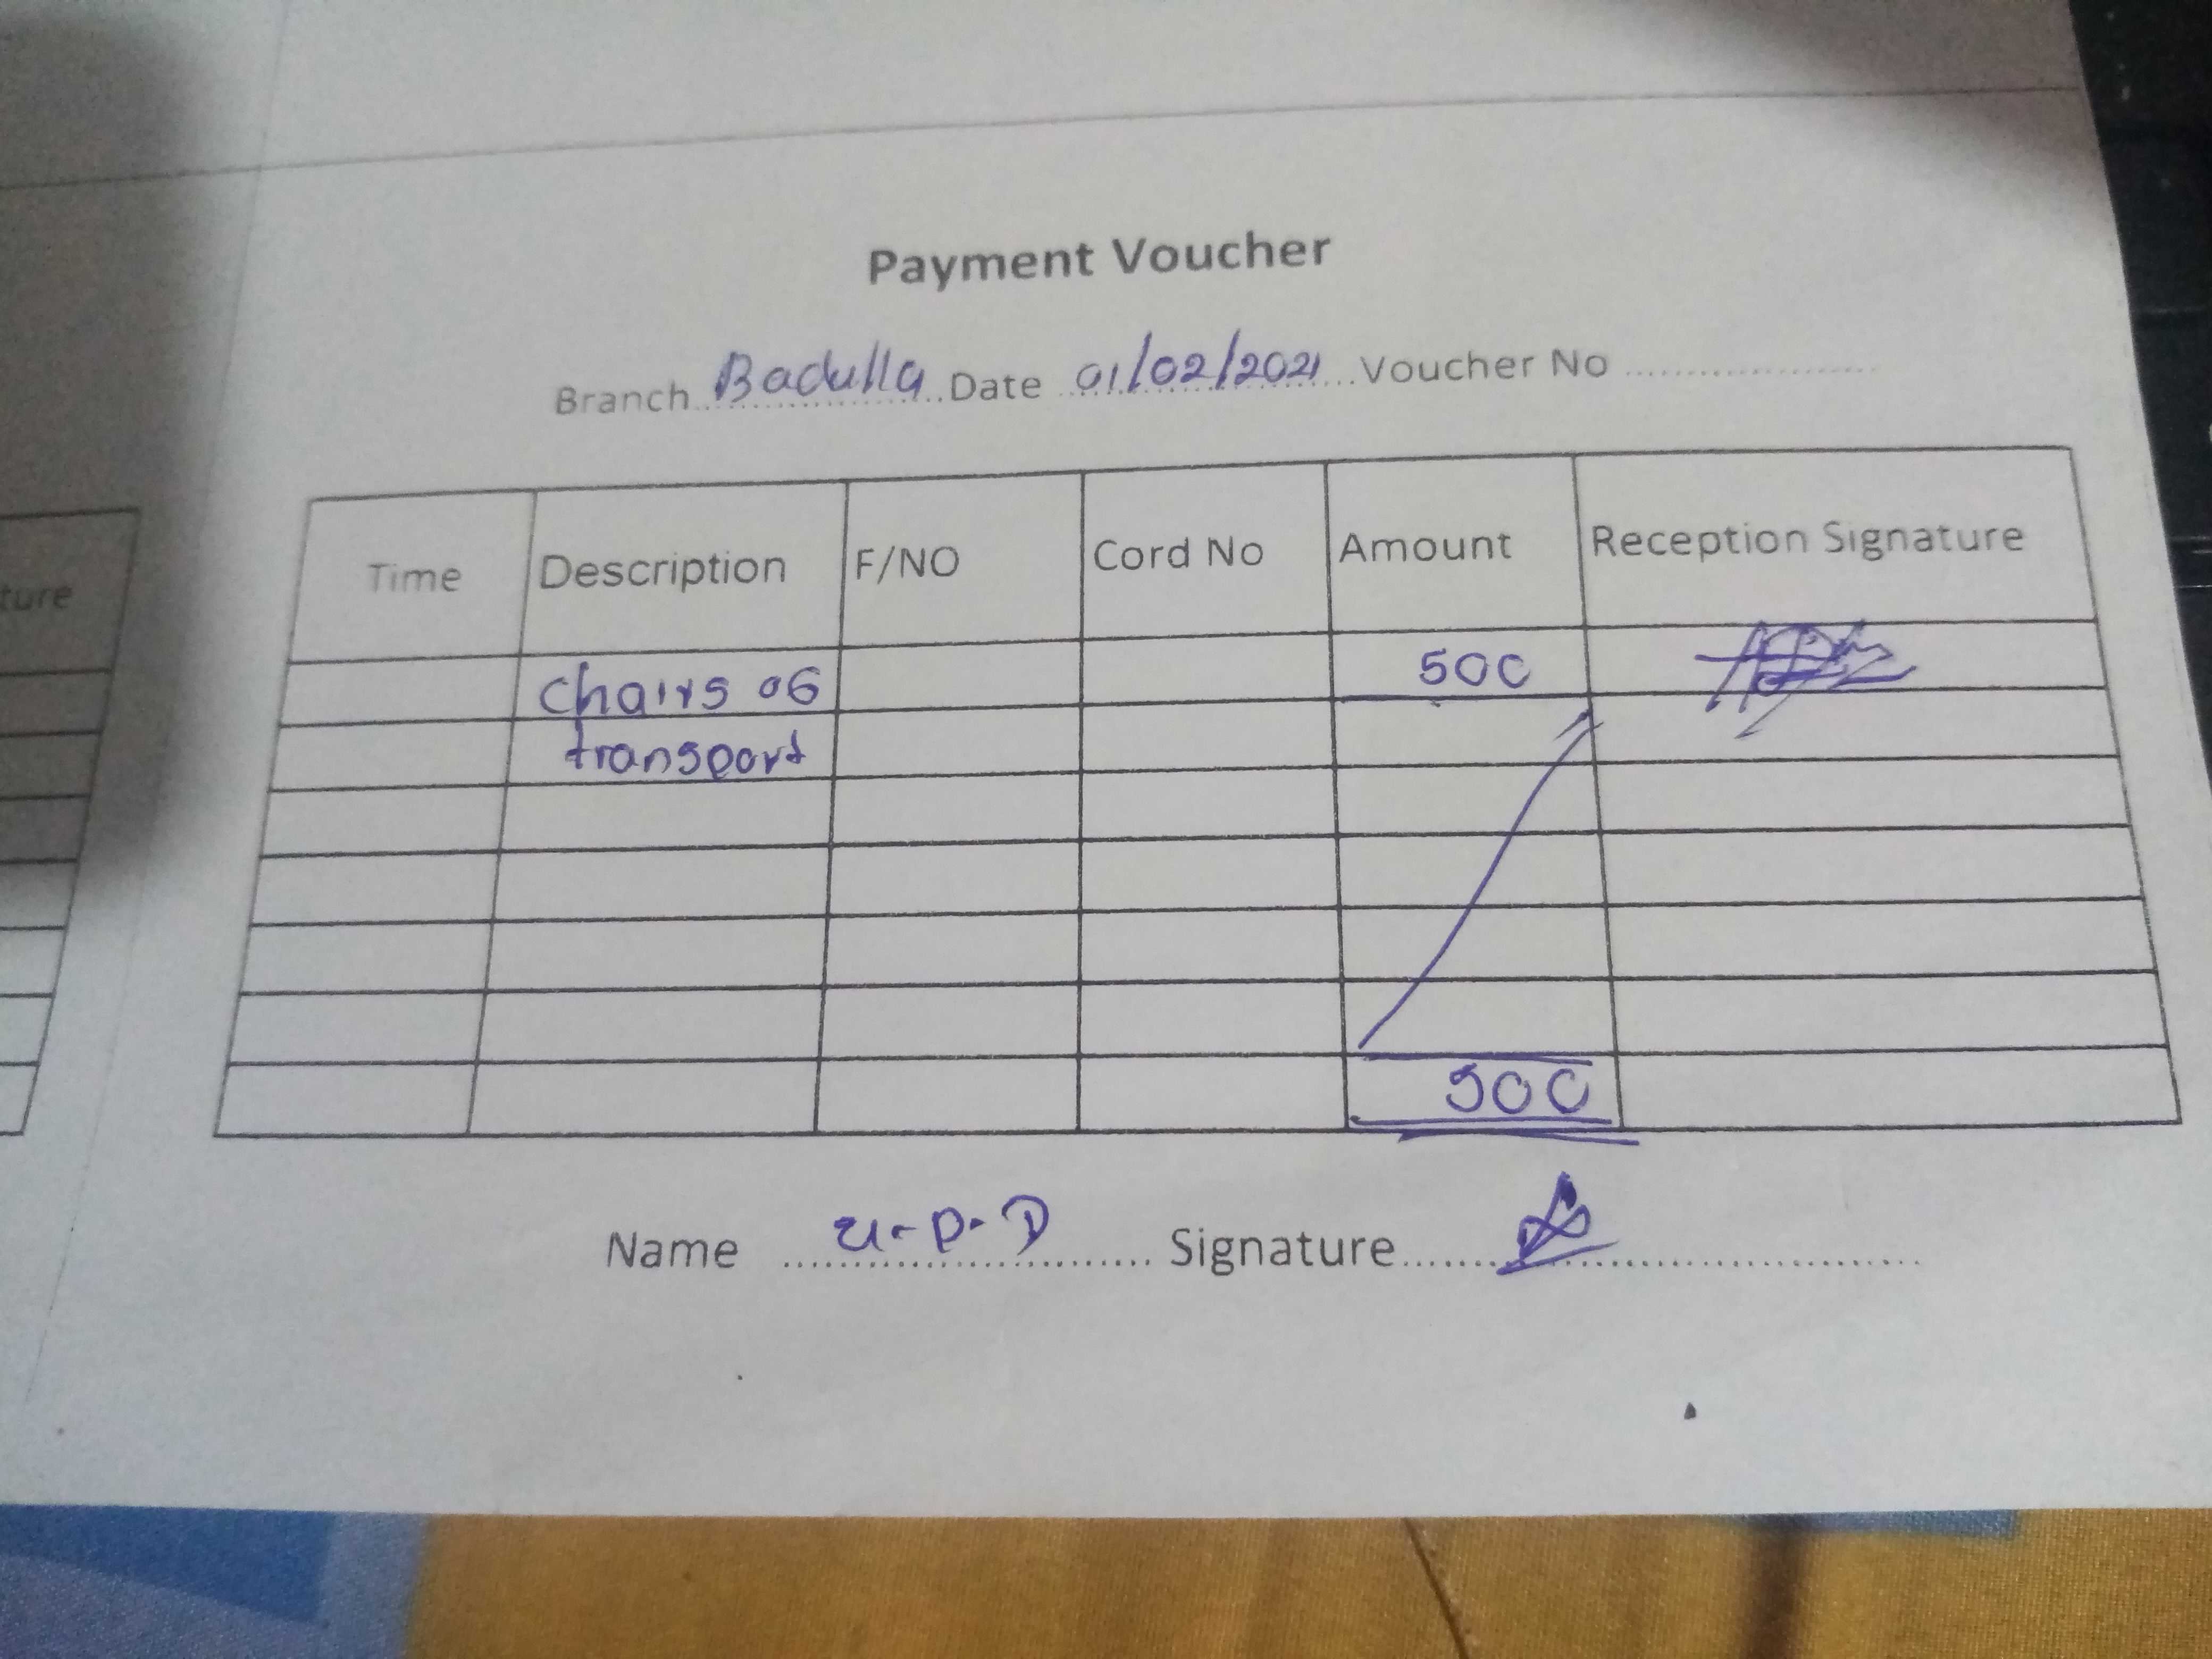 Payment Voucher
Branch Badulla Date 01/02/2021 Voucher No
Time Description F/NO Cord No Amount Reception Signature
ture
chairs 06 500
transport
500
Name u-p-D Signature